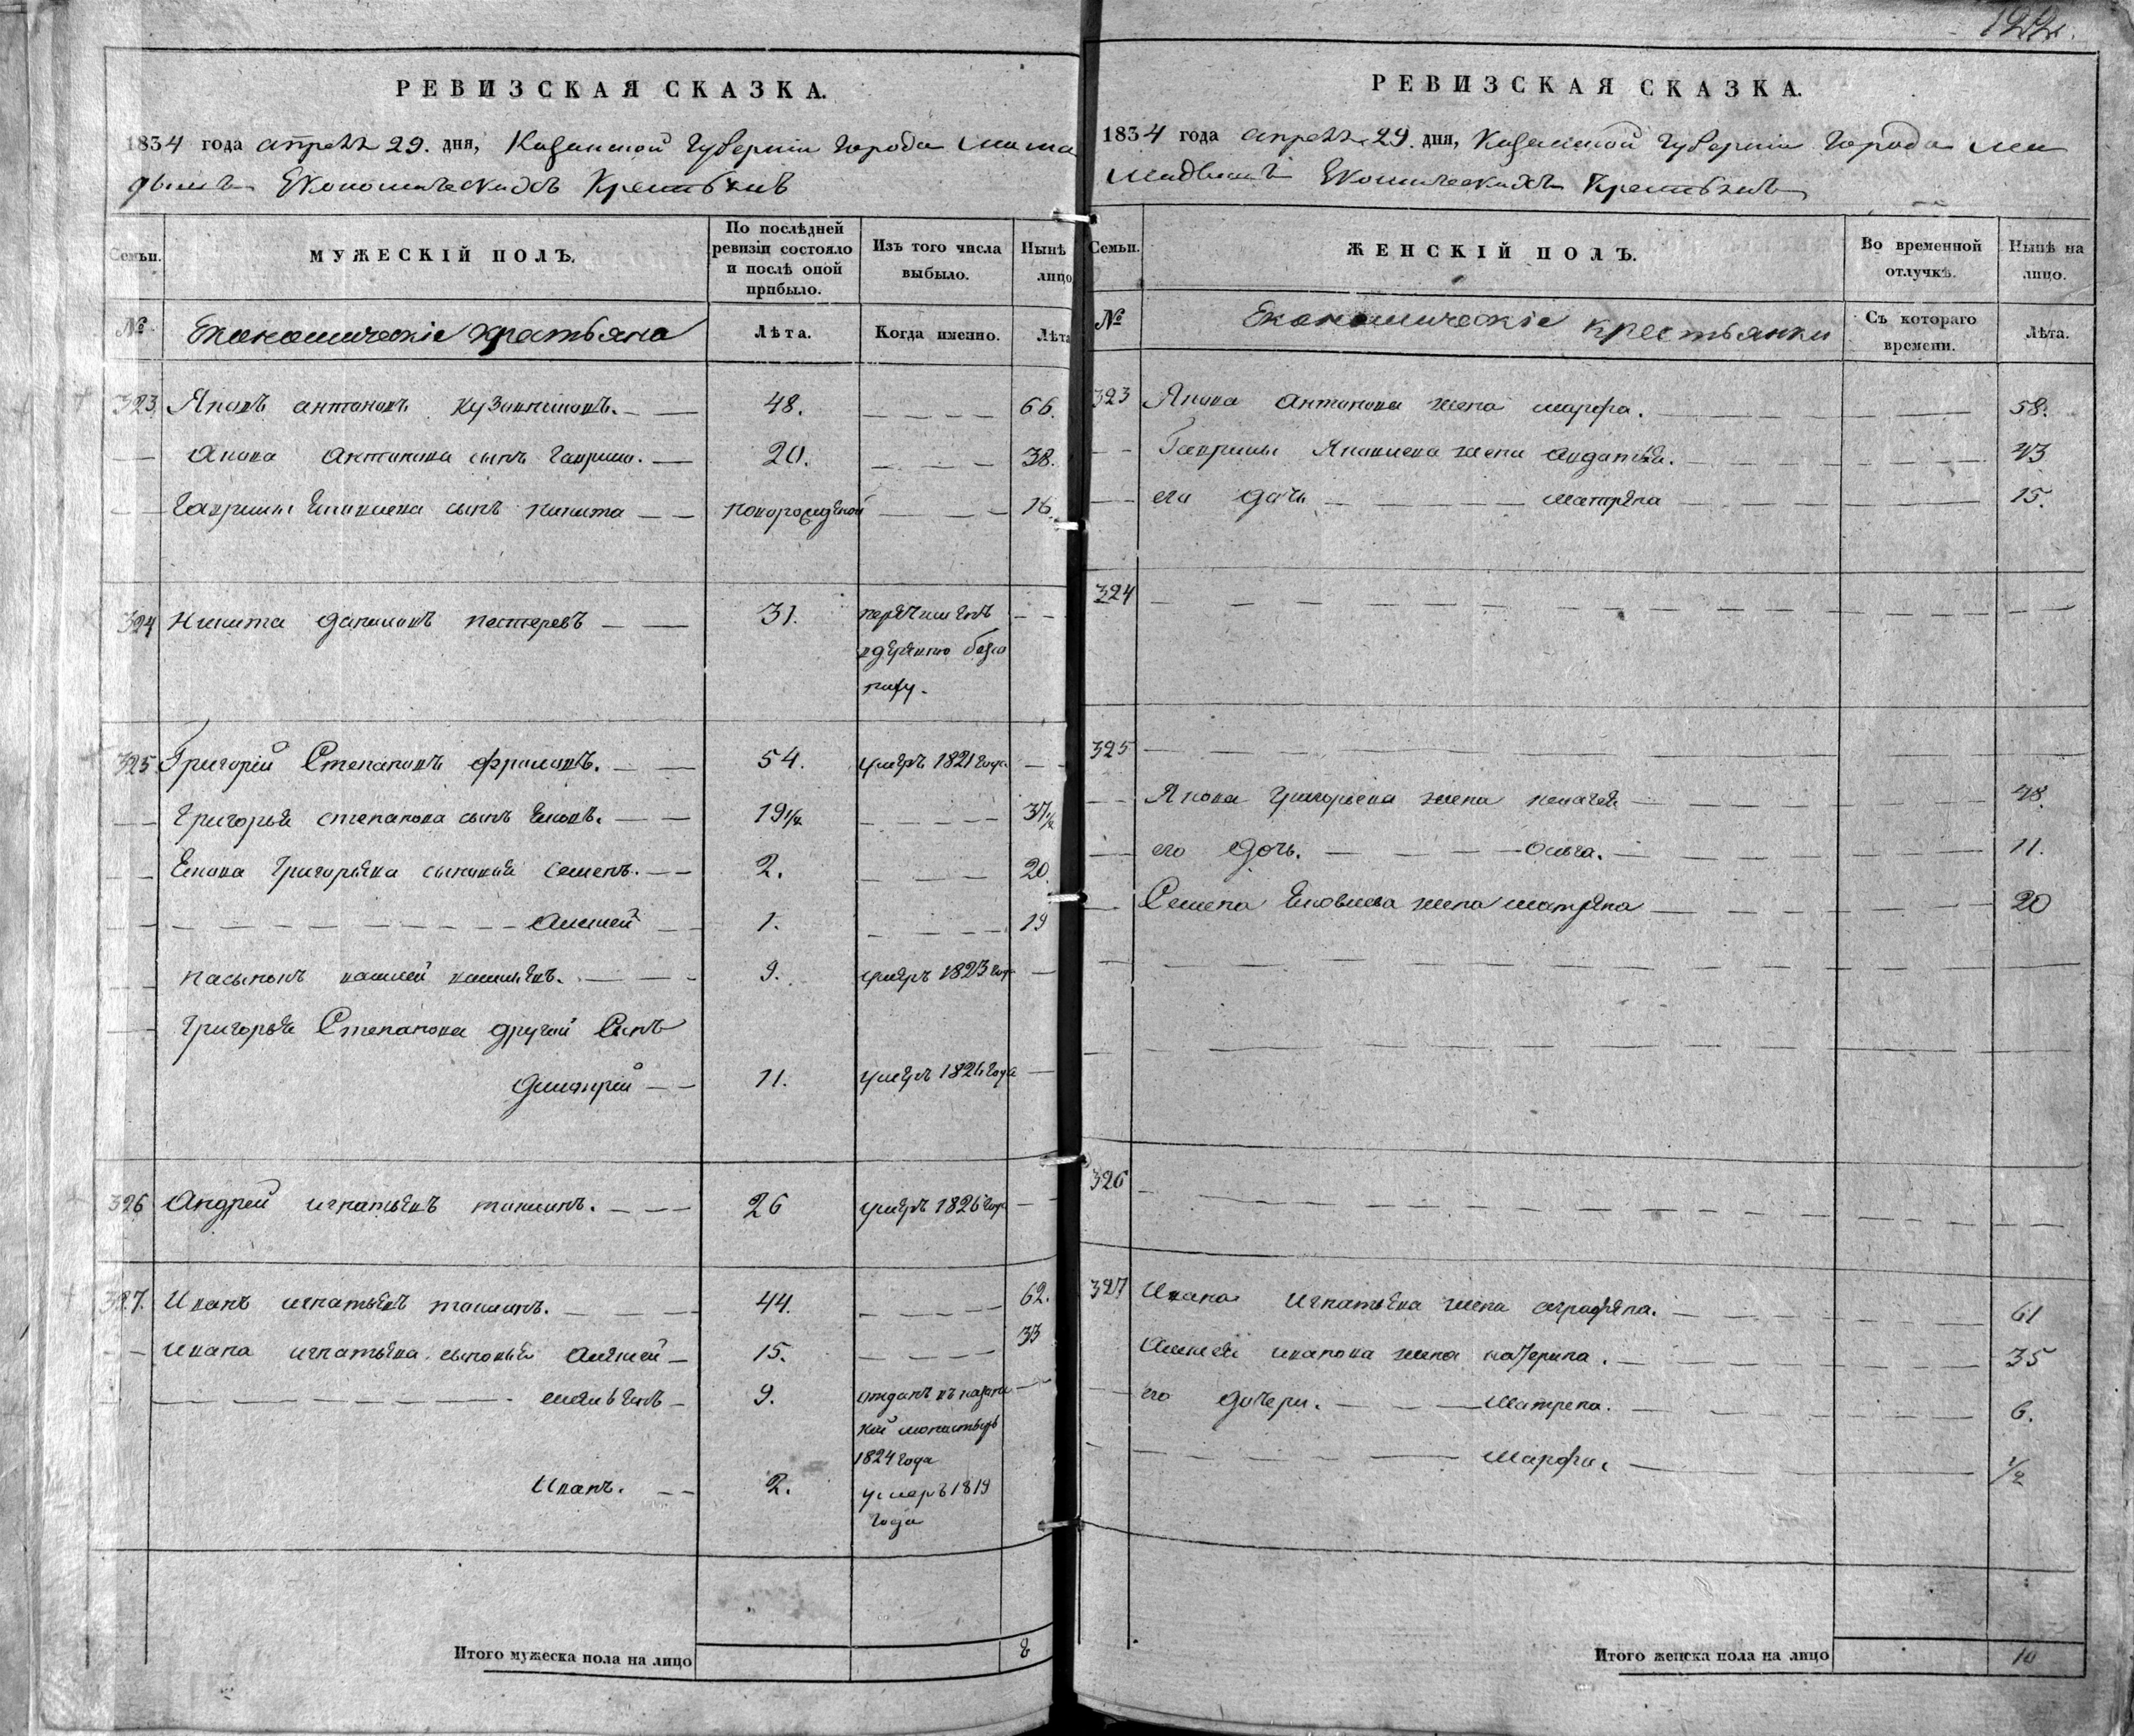 122.
РЕВИЗСКАЯ СКАЗКА.
1834 года апреля 29. дня, Казанской Губернии Города Мама
дышъ Економическихъ Крестьянъ
Семьи.
МУЖЕСКІЙ ПОЛЪ.
По послѣдней ревизіи состояло и послѣ оной прибыло.
Изъ того числа выбыло.
Нынѣ лицо
№
Економическіе крестьяне
Лѣта.
Когда именно.
Лѣта
323 Яковъ Антоновъ 48. 66.
Якова Антонова сынъ Гаврило. 20. 38.
Гаврилы Яковлева сынъ Никита новорожденой 16.
324 Никита Даниловъ Пестеревъ 31.
325 Григорій Степановъ Фроловъ. 54. умеръ 1821 года
Григорья Степанова сынъ Яковъ. 19 1/2 37 1/2
Якова Григорьева сыновья Семенъ. 2. 20.
Алексей 1. 19
пасынокъ 9. умеръ 1823 года
Григорья Степанова другой Сынъ
Дмитрій 11. умеръ 1826 года
326 Андрей Игнатьевъ 26 умеръ 1826 года
327. Иванъ Игнатьевъ 44. 62.
Ивана Игнатьева сыновья Алексей 15. 33
9. отданъ въ
монастырь
1824 года
Иванъ. 2. умеръ 1819
года
Итого мужеска пола на лицо 8
РЕВИЗСКАЯ СКАЗКА.
1834 года апреля 29. дня, Казанской Губернии Города Ма
мадышъ Економическихъ Крестьянъ
Семьи.
ЖЕНСКІЙ ПОЛЪ.
Во временной отлучкѣ.
Нынѣ на лицо.
№
Економическіе крестьянки
Съ котораго времени.
Лѣта.
323 Якова Антонова жена Марфа. 58.
Гаврилы Яковлева жена Авдатья. 43
его дочь Матрена 15.
324
325
Якова Григорьева жена Пелагея 48.
его дочь. Ольга. 11.
Семена Яковлева жена Матрена 20
326
327 Ивана Игнатьева жена Аграфена. 61
Алексея Иванова жена Катерина. 35
его дочери. Матрена. 6.
Марфа. 1/2
Итого женска пола на лицо 10